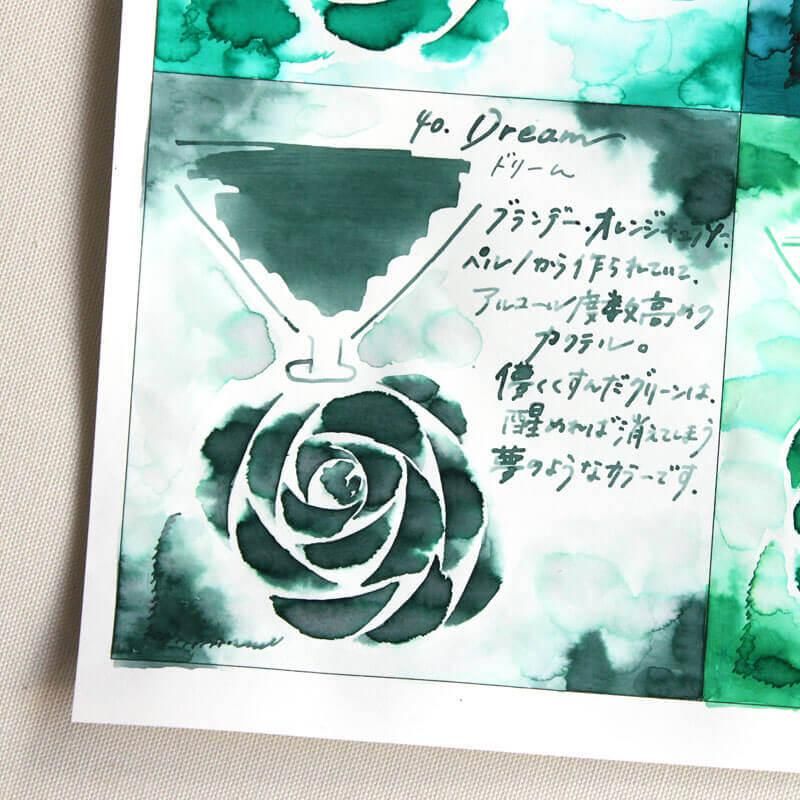 40. Dream
ドリーム
ブランデー・オレンジキュラソー、
ペルノから作られていて、
アルコール度数高めの
カクテル。
儚くくすんだグリーンは、
醒めれば消えてしまう
夢のようなカラーです。